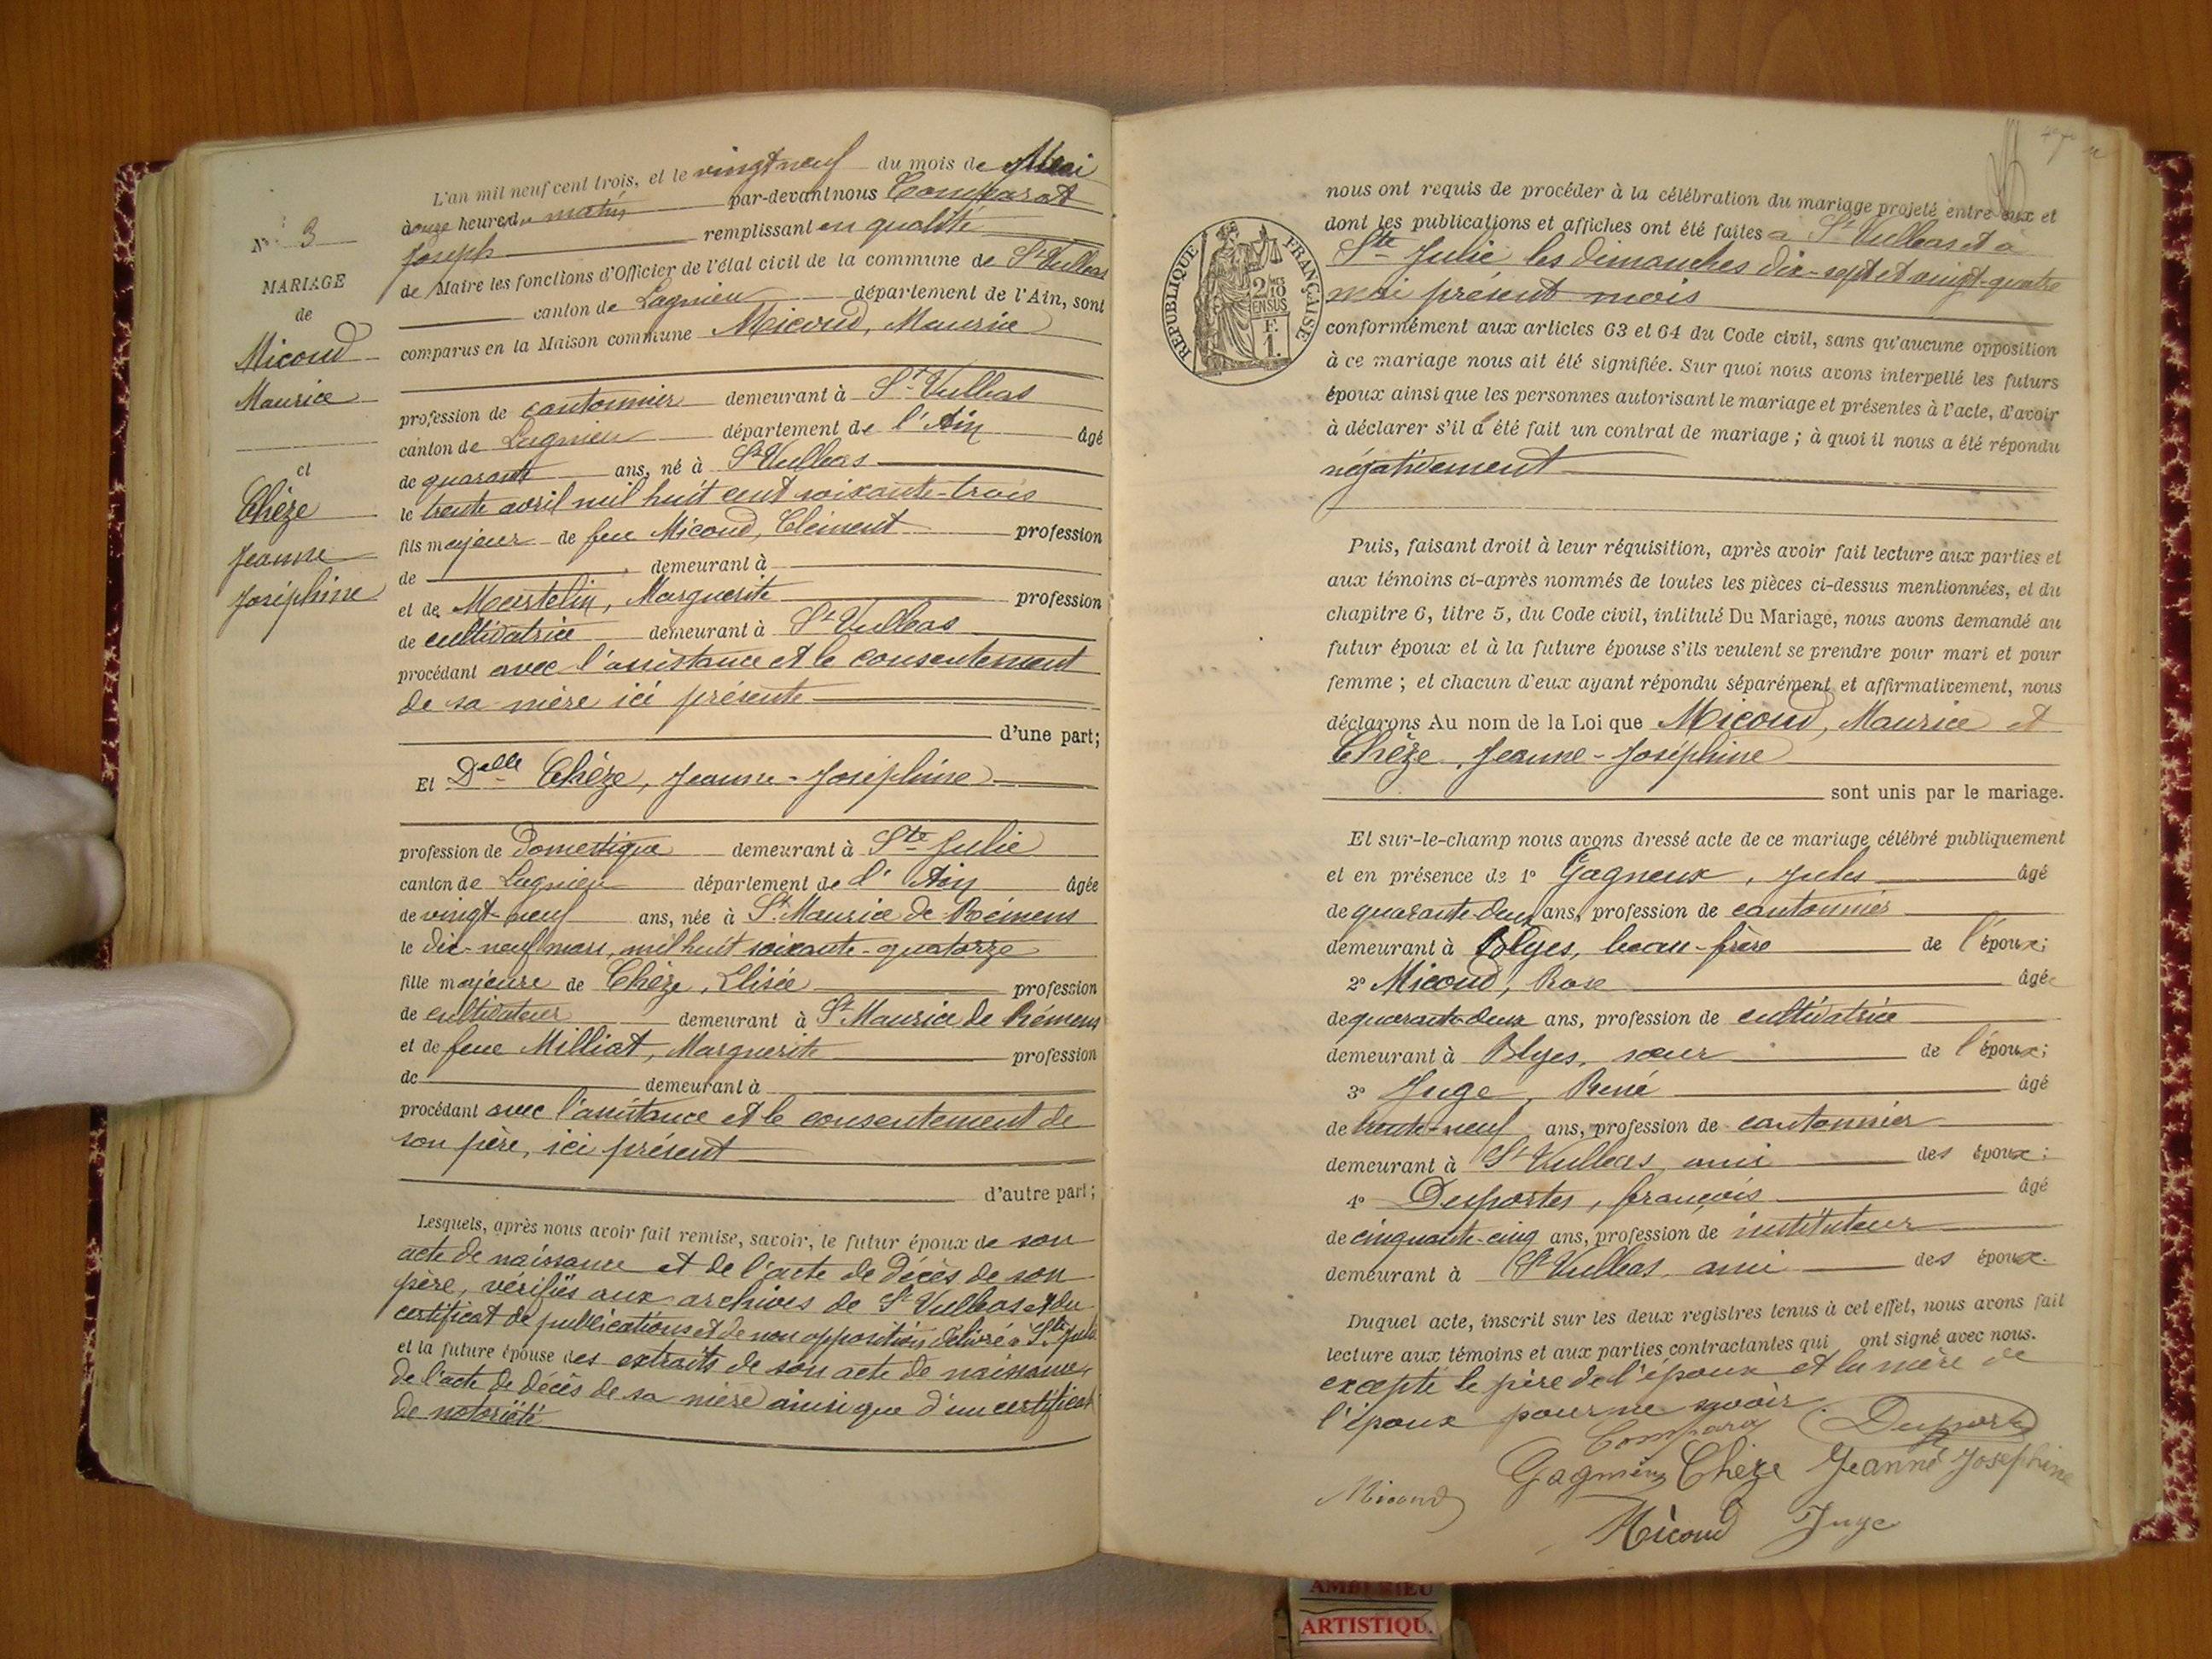 N° 3
MARIAGE
de
Micoud
Maurice
et
Chèze
Jeanne
Joséphine
L'an mil neuf cent trois, et le vingt neuf du mois de Mai
à onze heures du matin par-devant nous Comparat
Joseph remplissant en qualité
de Maire les fonctions d'Officier de l'état civil de la commune de St Vulbas
canton de Lagnieu département de l'Ain, sont
comparus en la Maison commune Micoud, Maurice
profession de cantonnier demeurant à St Vulbas
canton de Lagnieu département de l'Ain âgé
de quarante ans, né à St Vulbas
le trente avril mil huit cent soixante-trois
fils majeur de feu Micoud, Clément profession
de demeurant à
et de Martelin, Marguerite profession
de cultivatrice demeurant à St Vulbas
procédant avec l'assistance et le consentement
de sa mère ici présente
d'une part;
Et Delle Chèze, Jeanne-Joséphine
profession de domestique demeurant à Ste Julie
canton de Lagnieu département de l'Ain âgée
de vingt-neuf ans, née à St Maurice de Rémens
le dix-neuf mars, mil huit soixante-quatorze
fille majeure de Chèze, Elisée profession
de cultivateur demeurant à St Maurice de Rémens
et de feue Milliat, Marguerite profession
de demeurant à
procédant avec l'assistance et le consentement de
son père, ici présent
d'autre part;
Lesquels, après nous avoir fait remise, savoir, le futur époux de son
acte de naissance et de l'acte de décès de son
père, vérifiés aux archives de St Vulbas et du
certificat de publications et de non opposition délivré à Ste Julie
et la future épouse des extraits de son acte de naissance,
de l'acte de décès de sa mère ainsi que d'un certificat
de notoriété
RÉPUBLIQUE FRANÇAISE
2 MES 10 EN SUS
F. 1.
nous ont requis de procéder à la célébration du mariage projeté entre eux et
dont les publications et affiches ont été faites à St Vulbas et à
Ste Julie les dimanches dix-sept et vingt-quatre
mai présent mois
conformément aux articles 63 et 64 du Code civil, sans qu'aucune opposition
à ce mariage nous ait été signifiée. Sur quoi nous avons interpellé les futurs
époux ainsi que les personnes autorisant le mariage et présentes à l'acte, d'avoir
à déclarer s'il a été fait un contrat de mariage ; à quoi il nous a été répondu
négativement
Puis, faisant droit à leur réquisition, après avoir fait lecture aux parties et
aux témoins ci-après nommés de toutes les pièces ci-dessus mentionnées, et du
chapitre 6, titre 5, du Code civil, intitulé Du Mariage, nous avons demandé au
futur époux et à la future épouse s'ils veulent se prendre pour mari et pour
femme ; et chacun d'eux ayant répondu séparément et affirmativement, nous
déclarons Au nom de la Loi que Micoud, Maurice et
Chèze, Jeanne-Joséphine
sont unis par le mariage.
Et sur-le-champ nous avons dressé acte de ce mariage célébré publiquement
et en présence de 1° Gagneux, Jules âgé
de quarante-deux ans, profession de cantonnier
demeurant à Blyes, beau-frère de l'époux;
2° Micoud, Rose âgée
de quarante-deux ans, profession de cultivatrice
demeurant à Blyes, sœur de l'époux;
3° Juge, René âgé
de trente-neuf ans, profession de cantonnier
demeurant à St Vulbas, ami des époux;
4° Desportes, françois âgé
de cinquante-cinq ans, profession de instituteur
demeurant à St Vulbas, ami des époux.
Duquel acte, inscrit sur les deux registres tenus à cet effet, nous avons fait
lecture aux témoins et aux parties contractantes qui ont signé avec nous.
excepté le père de l'époux et la mère de
l'époux pour ne savoir.
Comparat
Gagneux Chèze Jeanne Josephine
Micoud
Micoud Juge
AMBERIEU
ARTISTIQU